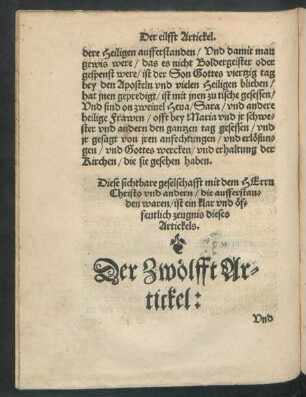 Der eilfft Artickel.
dere Heiligen aufferstanden / Vnd damit man
gewis were / das es nicht Poldergeister oder
gespenst were / ist der Son Gottes viertzig tag
bey den Aposteln vnd vielen Heiligen blieben /
hat jnen gepredigt / ist mit jnen zu tische gesessen /
Vnd sind on zweiuel Heua / Sara / vnd andere
heilige Frawen / offt bey Maria vnd jr schwe-
ster vnd andern den gantzen tag gesessen / vnd
jr gesagt von jren anfechtungen / vnd erlösun-
gen / vnd Gottes wercken / vnd erhaltung der
Kirchen / die sie gesehen haben.
Diese sichtbare geselschafft mit dem HErrn
Christo vnd andern / die aufferstan-
den waren / ist ein klar vnd öf-
fentlich zeugnis dieses
Artickels.
Der Zwölfft Ar-
tickel:
Vnd